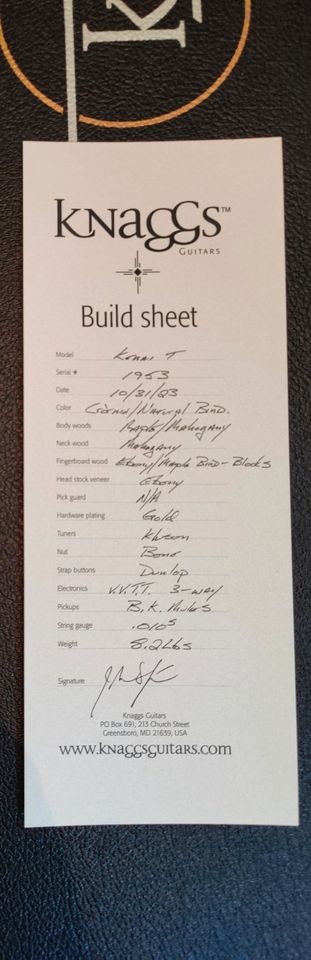 KNaGGS™
GUITARS
Build sheet
Model Kenai T
Serial # 1953
Date 10/31/23
Color Creme/Natural Bind.
Body woods Maple/Mahogany
Neck wood Mahogany
Fingerboard wood Ebony/Maple Bind-Blocks
Head stock veneer Ebony
Pick guard N/A
Hardware plating Gold
Tuners Kluson
Nut Bone
Strap buttons Dunlop
Electronics V.V.T.T. 3-way
Pickups B.K. Mules
String gauge .010s
Weight 8.2Lbs
Signature
Knaggs Guitars
PO Box 691, 213 Church Street
Greensboro, MD 21639, USA
www.KNaGGSGUITARS.com